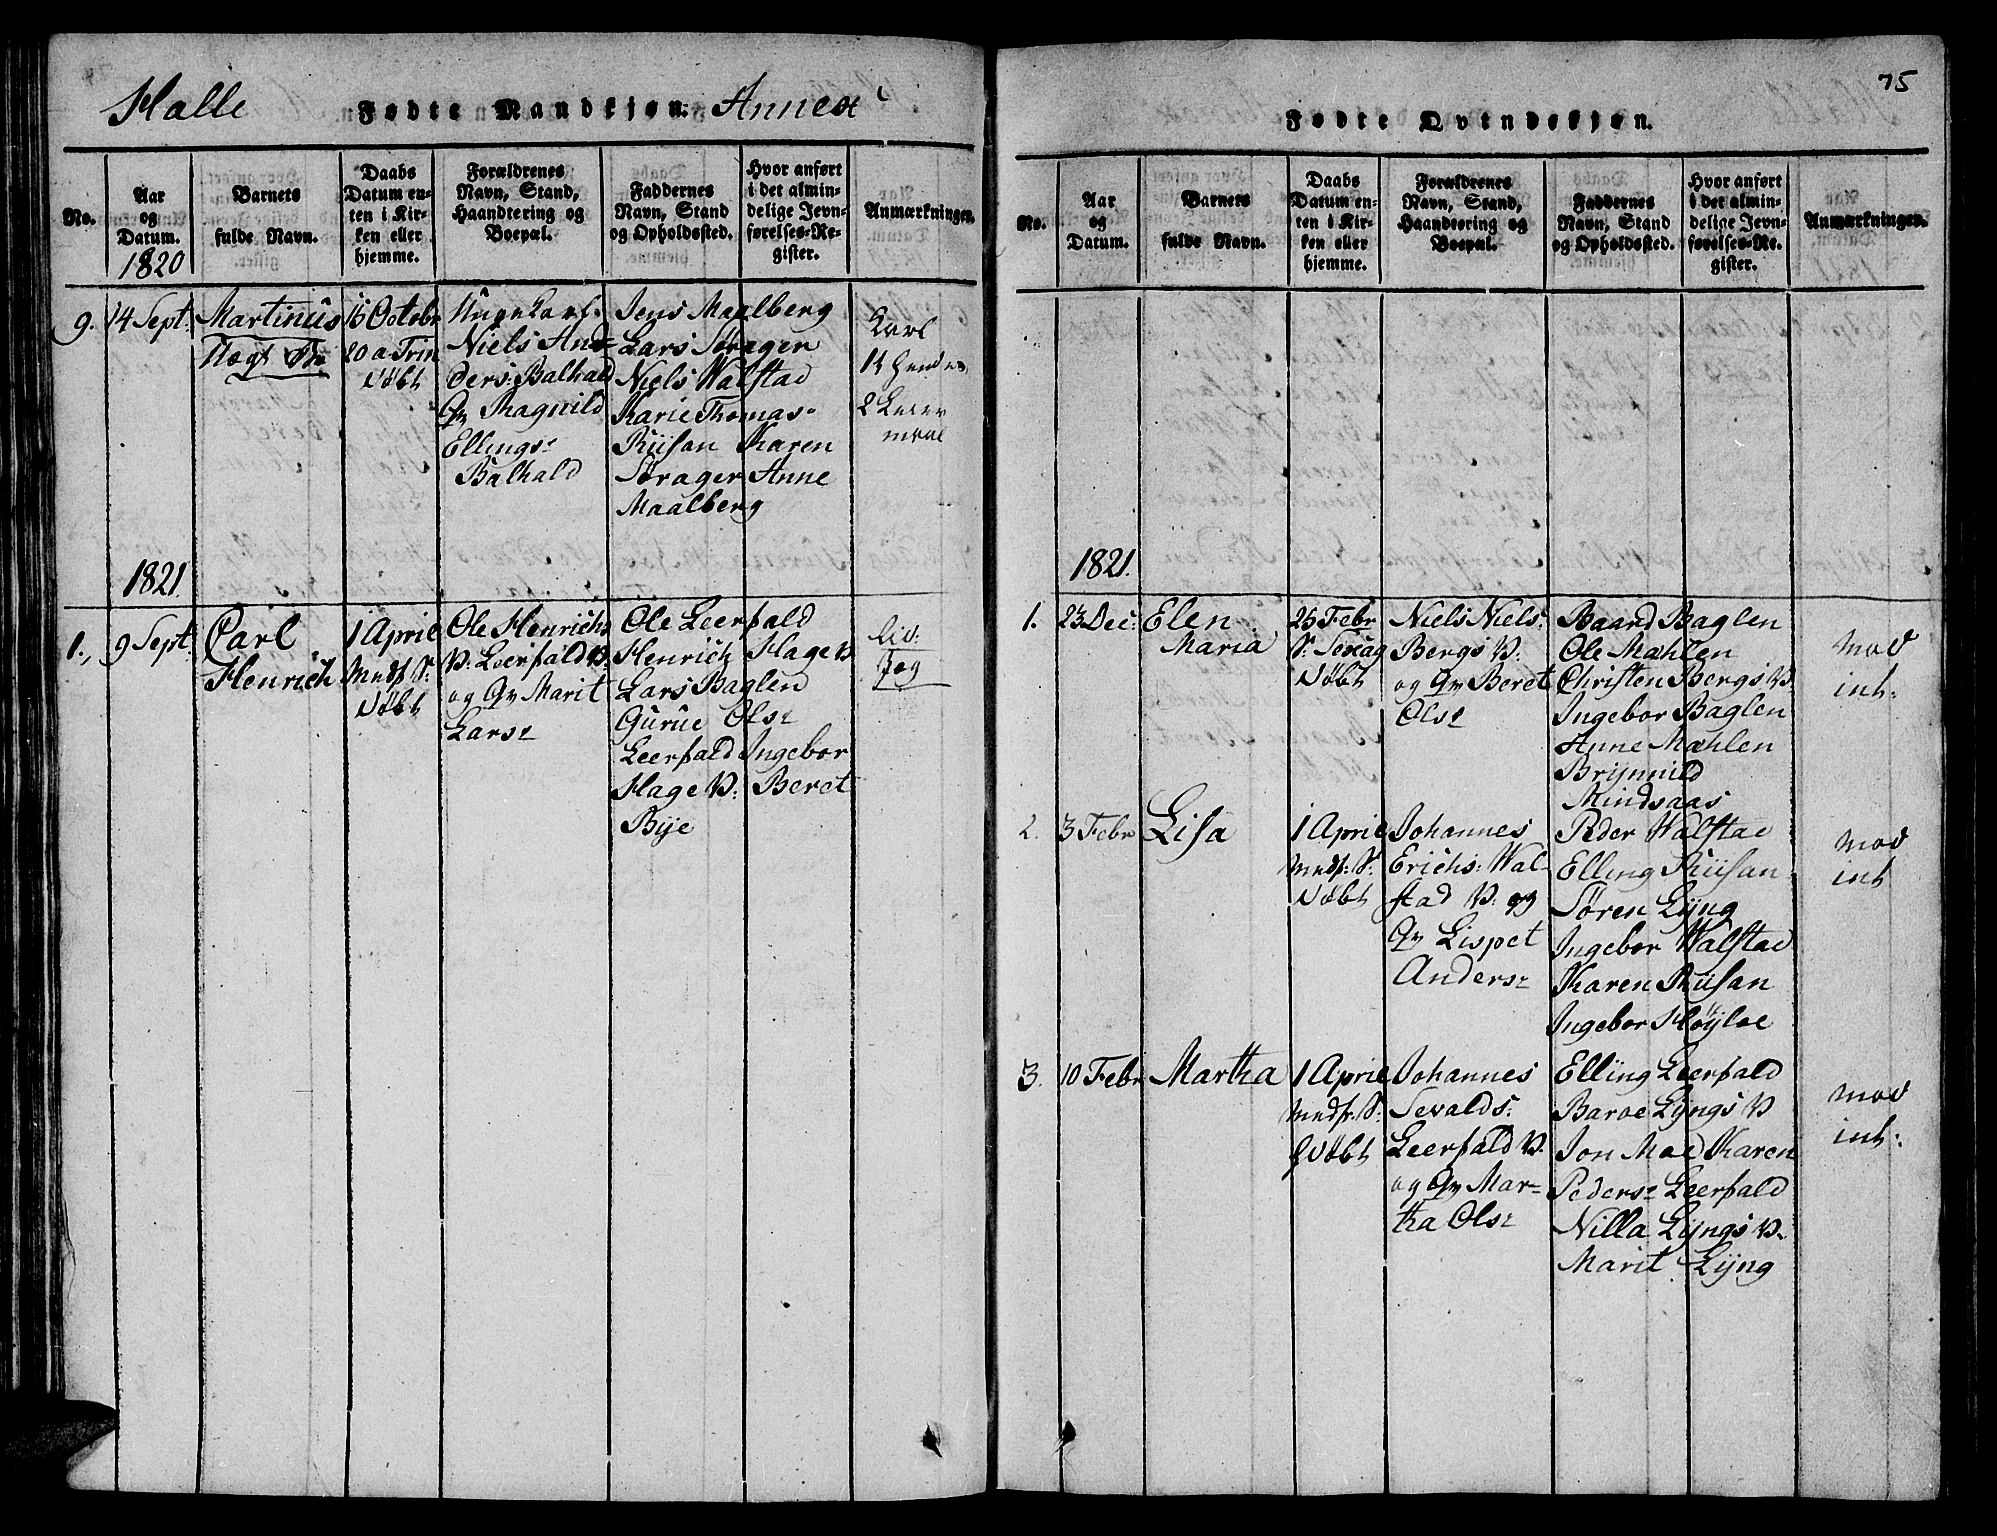 Halle Fødte Mandkjøn. Annex
No.
Aar
og
Datum.
1820
Barnets
fulde Navn.
Daabs
Datum en-
ten i Kir-
ken eller
hjemme.
Forældrenes
Navn, Stand,
Haandtering og
Boepæl.
Faddernes
Navn, Stand
og Opholdssted.
Hvor anført
i det almin-
delige Jevn-
førelses-Re-
gister.
Anmærkninger.
9.
14 Sept:
Martinus
15 Octobr
20 a Trin
døbt
Unge Karl
Niels And-
ders: Balhald
Ragnild
Ellings
Balhald
Jens Maalberg
Lars Sørager
Niels Walstad
Karie Thomas-
Riisan Karen
Sørager Anne
Maalberg
Karl
2 Leier
maal
1821
1.
9 Sept:
Carl
Henrich
1 April
Mndf: S:
døbt
Ole Henrichs
P: Leerfald P:
og Qv Marit
Lars
Ole Leerfald
Henrich Hage P
Lars Baglen
Gurue Ols
Leerfald Ingebor
Hage P: Beret
Bye
75
Fødte Qvindekjøn.
No.
Aar
og
Datum.
Barnets
fulde Navn.
Daabs
Datum en-
ten i Kir-
ken eller
hjemme.
Forældrenes
Navn, Stand,
Haandtering og
Boepæl.
Faddernes
Navn, Stand
og Opholdssted.
Hvor anført
i det almin-
delige Jevn-
førelses-Re-
gister.
Anmærkninger.
1821.
1.
23 Dec:
Elen
Maria
25 Febr
døbt
Niels Niels:
Bergs P:
og Qv Beret
Ols
Baard Baglen
Ole Mahlen
Christen Bergs P.
Ingebor Baglen
Anne Mahlen
Brynnild
Mindsaas
mod
int:
2.
3 Febr
Lisa
1 April
Mndf: S:
døbt
Johannes
Erichs: Wal-
stad P: og
Qv Lispet
Anders
Peder Walstad
Elling Riisan
Søren Lyng
Ingebor Walstad
Karen Riisan
Ingebor Høyloe
mod
int
3.
10 Febr
Martha
1 April
Mndf: S:
døbt
Johannes
Sevalds:
Leerfald P:
og Qv Mar-
tha Ols
Elling Leerfald
Baroe Lyngs P
Jon Moe Karen
Peders Leerfald
Nilla Lyngs P.
Marit Lyng
mod
int: